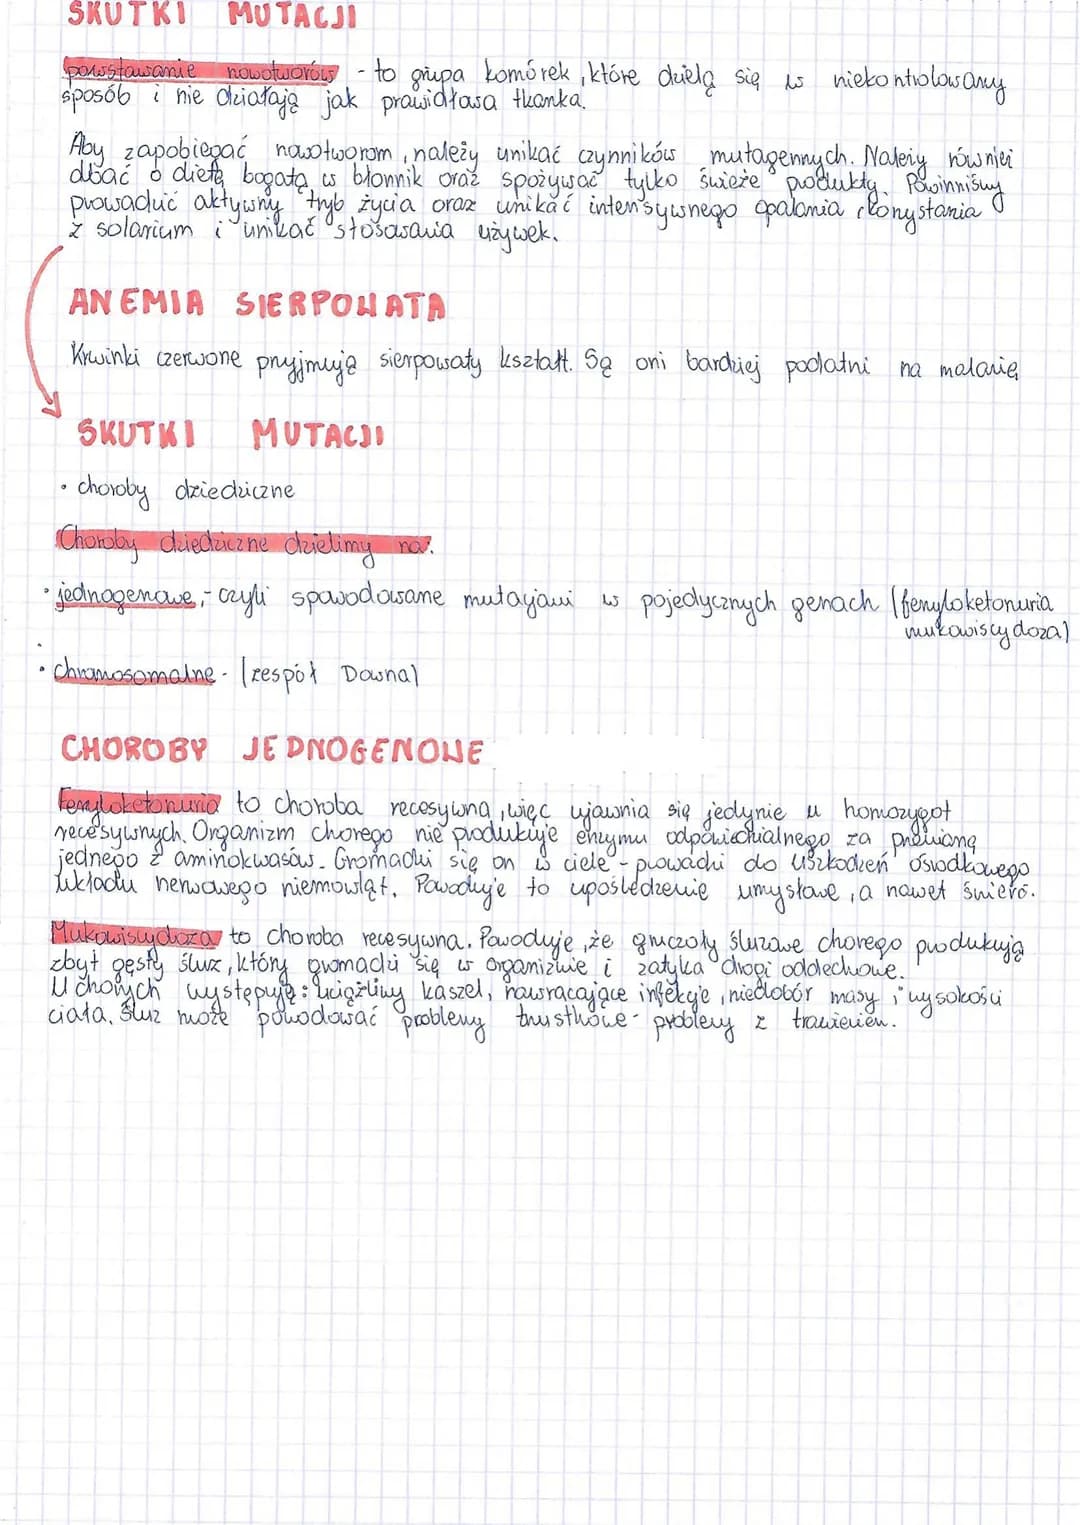 SKUTKI MUTACJI
powstawanie nowotworów - to grupa komórek, które dzielą się w niekontrolowany
sposób i nie działają jak prawidłowa tkanka.
Aby zapobiegać nowotworom, należy unikać czynników mutagennych. Należy również
dbać o dietę bogatą w błonnik oraz spożywać tylko świeże produkty. Powinniśmy
prowadzić aktywny tryb życia oraz unikać intensywnego opalania i korzystania
z solarium i unikać stosowania używek.
ANEMIA SIERPOWATA
Krwinki czerwone przyjmują sierpowaty kształt. Są oni bardziej podatni na malarię
SKUTKI MUTACJI
• choroby dziedziczne
Choroby dziedziczne dzielimy na:
• jednogenowe, - czyli spowodowane mutacjami w pojedycznych genach (fenyloketonuria
mukowiscydoza)
• chromosomalne - (zespół Downa)
CHOROBY JEDNOGENOWE
Fenyloketonuria to choroba recesywna, więc ujawnia się jedynie u homozygot
recesywnych. Organizm chorego nie produkuje enzymu odpowiedzialnego za przemianę
jednego z aminokwasów. Gromadzi się on w ciele - prowadzi do uszkodzeń ośrodkowego
układu nerwowego niemowląt. Powoduje to upośledzenie umysłowe, a nawet śmierć.
Mukowiscydoza to choroba recesywna. Powoduje, że gruczoły śluzowe chorego produkują
zbyt gęsty śluz, który gromadzi się w organizmie i zatyka drogi oddechowe.
U chorych występują: uciążliwy kaszel, nawracające infekcje, niedobór masy i wysokości
ciała. Śluz może powodować problemy trzustkowe - problemy z trawieniem.